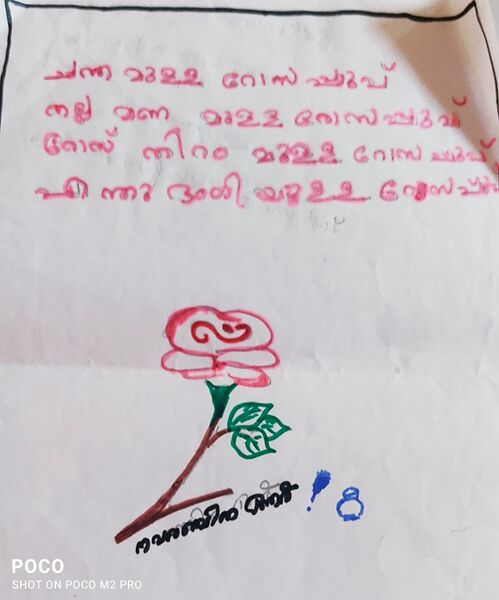 ചന്ത മുള്ള റോസ പ്പൂവ്
നല്ല മണ മുള്ള റോസപ്പൂവ്
റോസ് നിറം മുള്ള റോസ പ്പൂവ്
എ ന്തു ഭംഗി യുള്ള റോസപ്പൂ
POCO
SHOT ON POCO M2 PRO